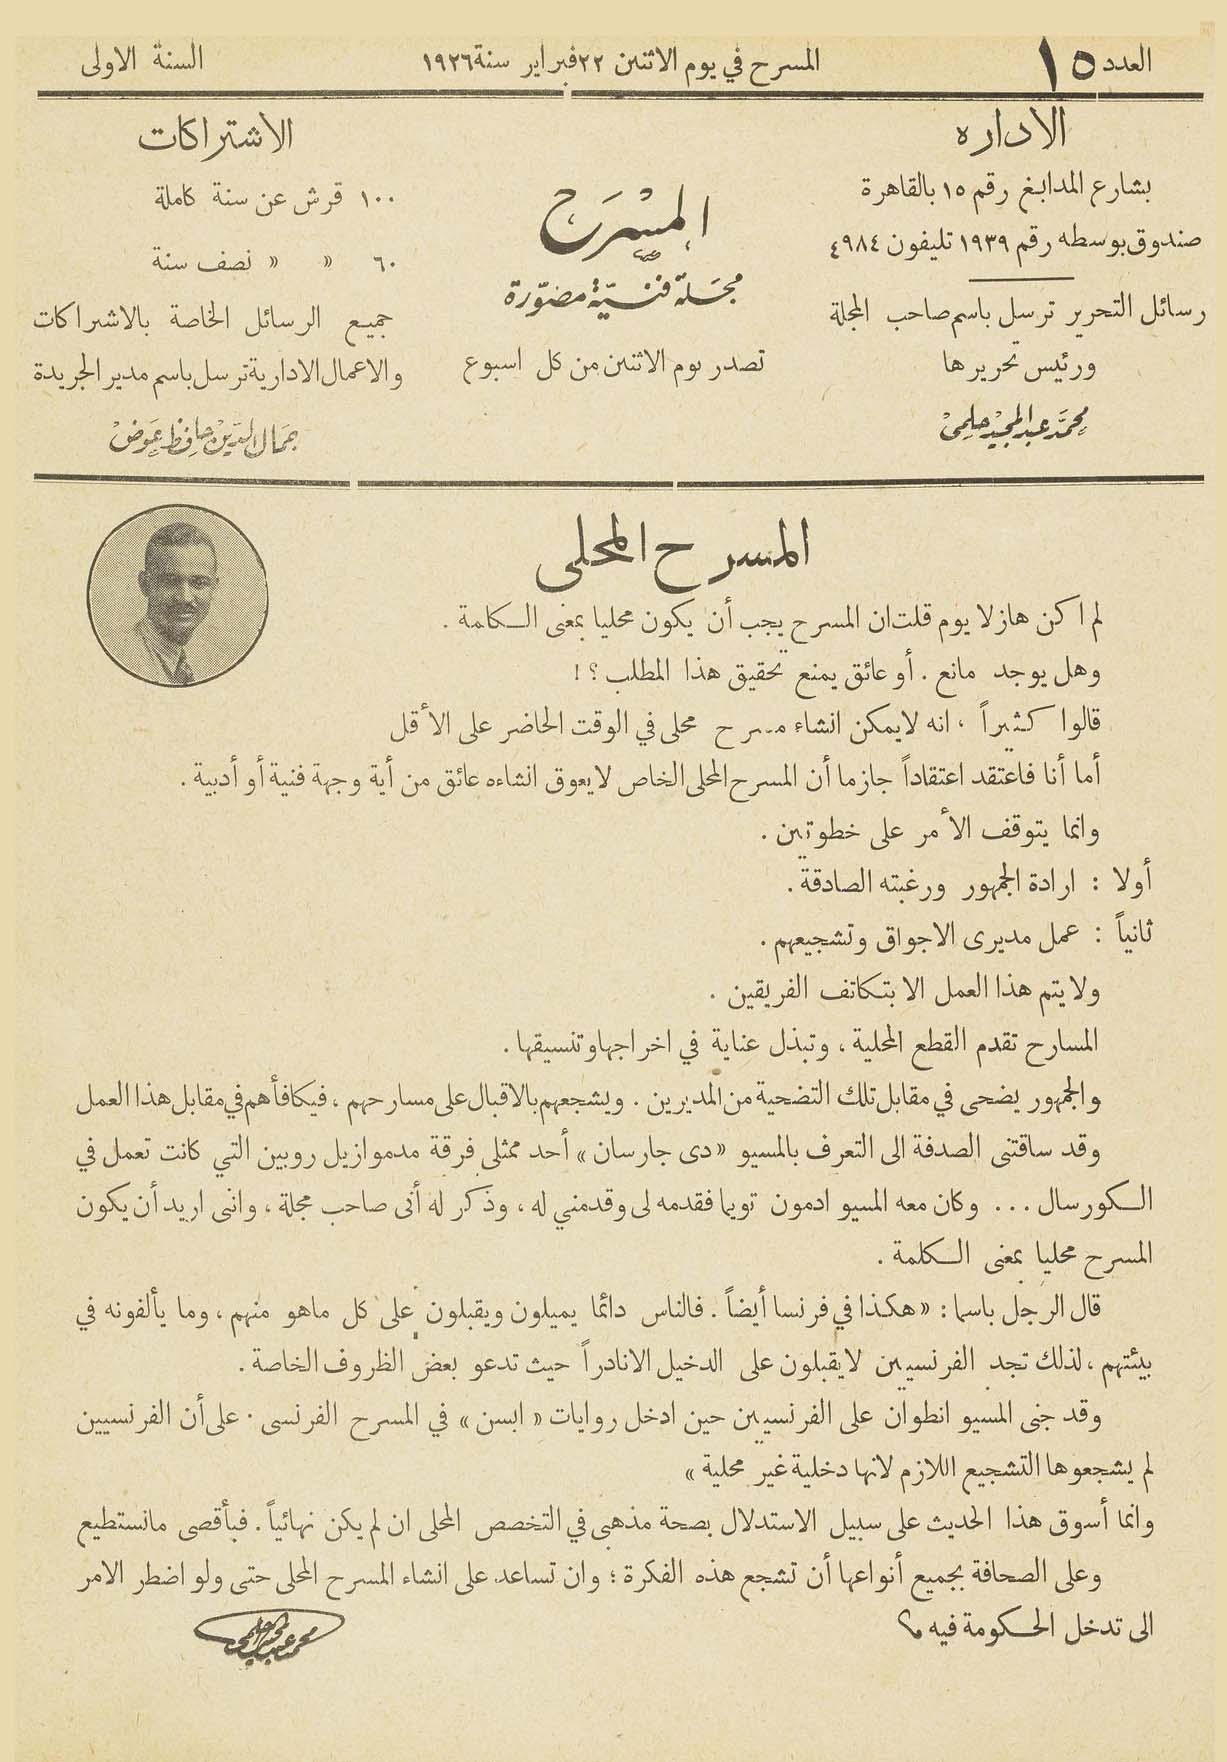 العدد ١٥
المسرح في يوم الاثنين ٢٢ فبراير سنة ١٩٢٦
السنة الاولى
الاداره
بشارع المدابغ رقم ١٥ بالقاهرة
صندوق بوسطه رقم ١٩٣٩ تليفون ٤٩٨٤
رسائل التحرير ترسل باسم صاحب المجلة
ورئيس تحريرها
محمد عبد المجيد حلمى
المسرح
مجلة فنية مصورة
تصدر يوم الاثنين من كل اسبوع
الاشتراكات
١٠٠ قرش عن سنة كاملة
٦٠ » » نصف سنة
جميع الرسائل الخاصة بالاشتراكات
والاعمال الادارية ترسل باسم مدير الجريدة
جمال الدين حافظ عوض
المسرح المحلى
لم اكن هازلا يوم قلت ان المسرح يجب أن يكون محليا بمعنى الكلمة .
وهل يوجد مانع . أو عائق يمنع تحقيق هذا المطلب ؟ !
قالوا كثيراً ، انه لا يمكن انشاء مسرح محلى في الوقت الحاضر على الأقل
أما أنا فاعتقد اعتقاداً جازما أن المسرح المحلى الخاص لا يعوق انشاءه عائق من أية وجهة فنية أو أدبية .
وانما يتوقف الأمر على خطوتين .
أولا : ارادة الجمهور ورغبته الصادقة .
ثانياً : عمل مديرى الاجواق وتشجيعهم .
ولا يتم هذا العمل الا بتكاتف الفريقين .
المسارح تقدم القطع المحلية ، وتبذل عناية في اخراجها وتنسيقها .
والجمهور يضحى في مقابل تلك التضحية من المديرين . ويشجعهم بالاقبال على مسارحهم ، فيكافأهم في مقابل هذا العمل
وقد ساقتنى الصدفة الى التعرف بالمسيو «دى جارسان» أحد ممثلى فرقة مدموازيل روبين التي كانت تعمل في
الكورسال ... وكان معه المسيو ادمون تويما فقدمه لى وقدمني له ، وذكر له أنى صاحب مجلة ، وانى اريد أن يكون
المسرح محليا بمعنى الكلمة .
قال الرجل باسما : «هكذا في فرنسا أيضاً . فالناس دائما يميلون ويقبلون على كل ماهو منهم ، وما يألفونه في
بيئتهم ، لذلك تجد الفرنسيين لا يقبلون على الدخيل الا نادراً حيث تدعو بعض الظروف الخاصة .
وقد جنى المسيو انطوان على الفرنسيين حين ادخل روايات « ابسن » في المسرح الفرنسى . على أن الفرنسيين
لم يشجعوها التشجيع اللازم لانها دخلية غير محلية »
وانما أسوق هذا الحديث على سبيل الاستدلال بصحة مذهبى في التخصص المحلى ان لم يكن نهائياً . فبأقصى مانستطيع
وعلى الصحافة بجميع أنواعها أن تشجع هذه الفكرة ؛ وان تساعد على انشاء المسرح المحلى حتى ولو اضطر الامر
الى تدخل الحكومة فيه
محمد عبد المجيد حلمى